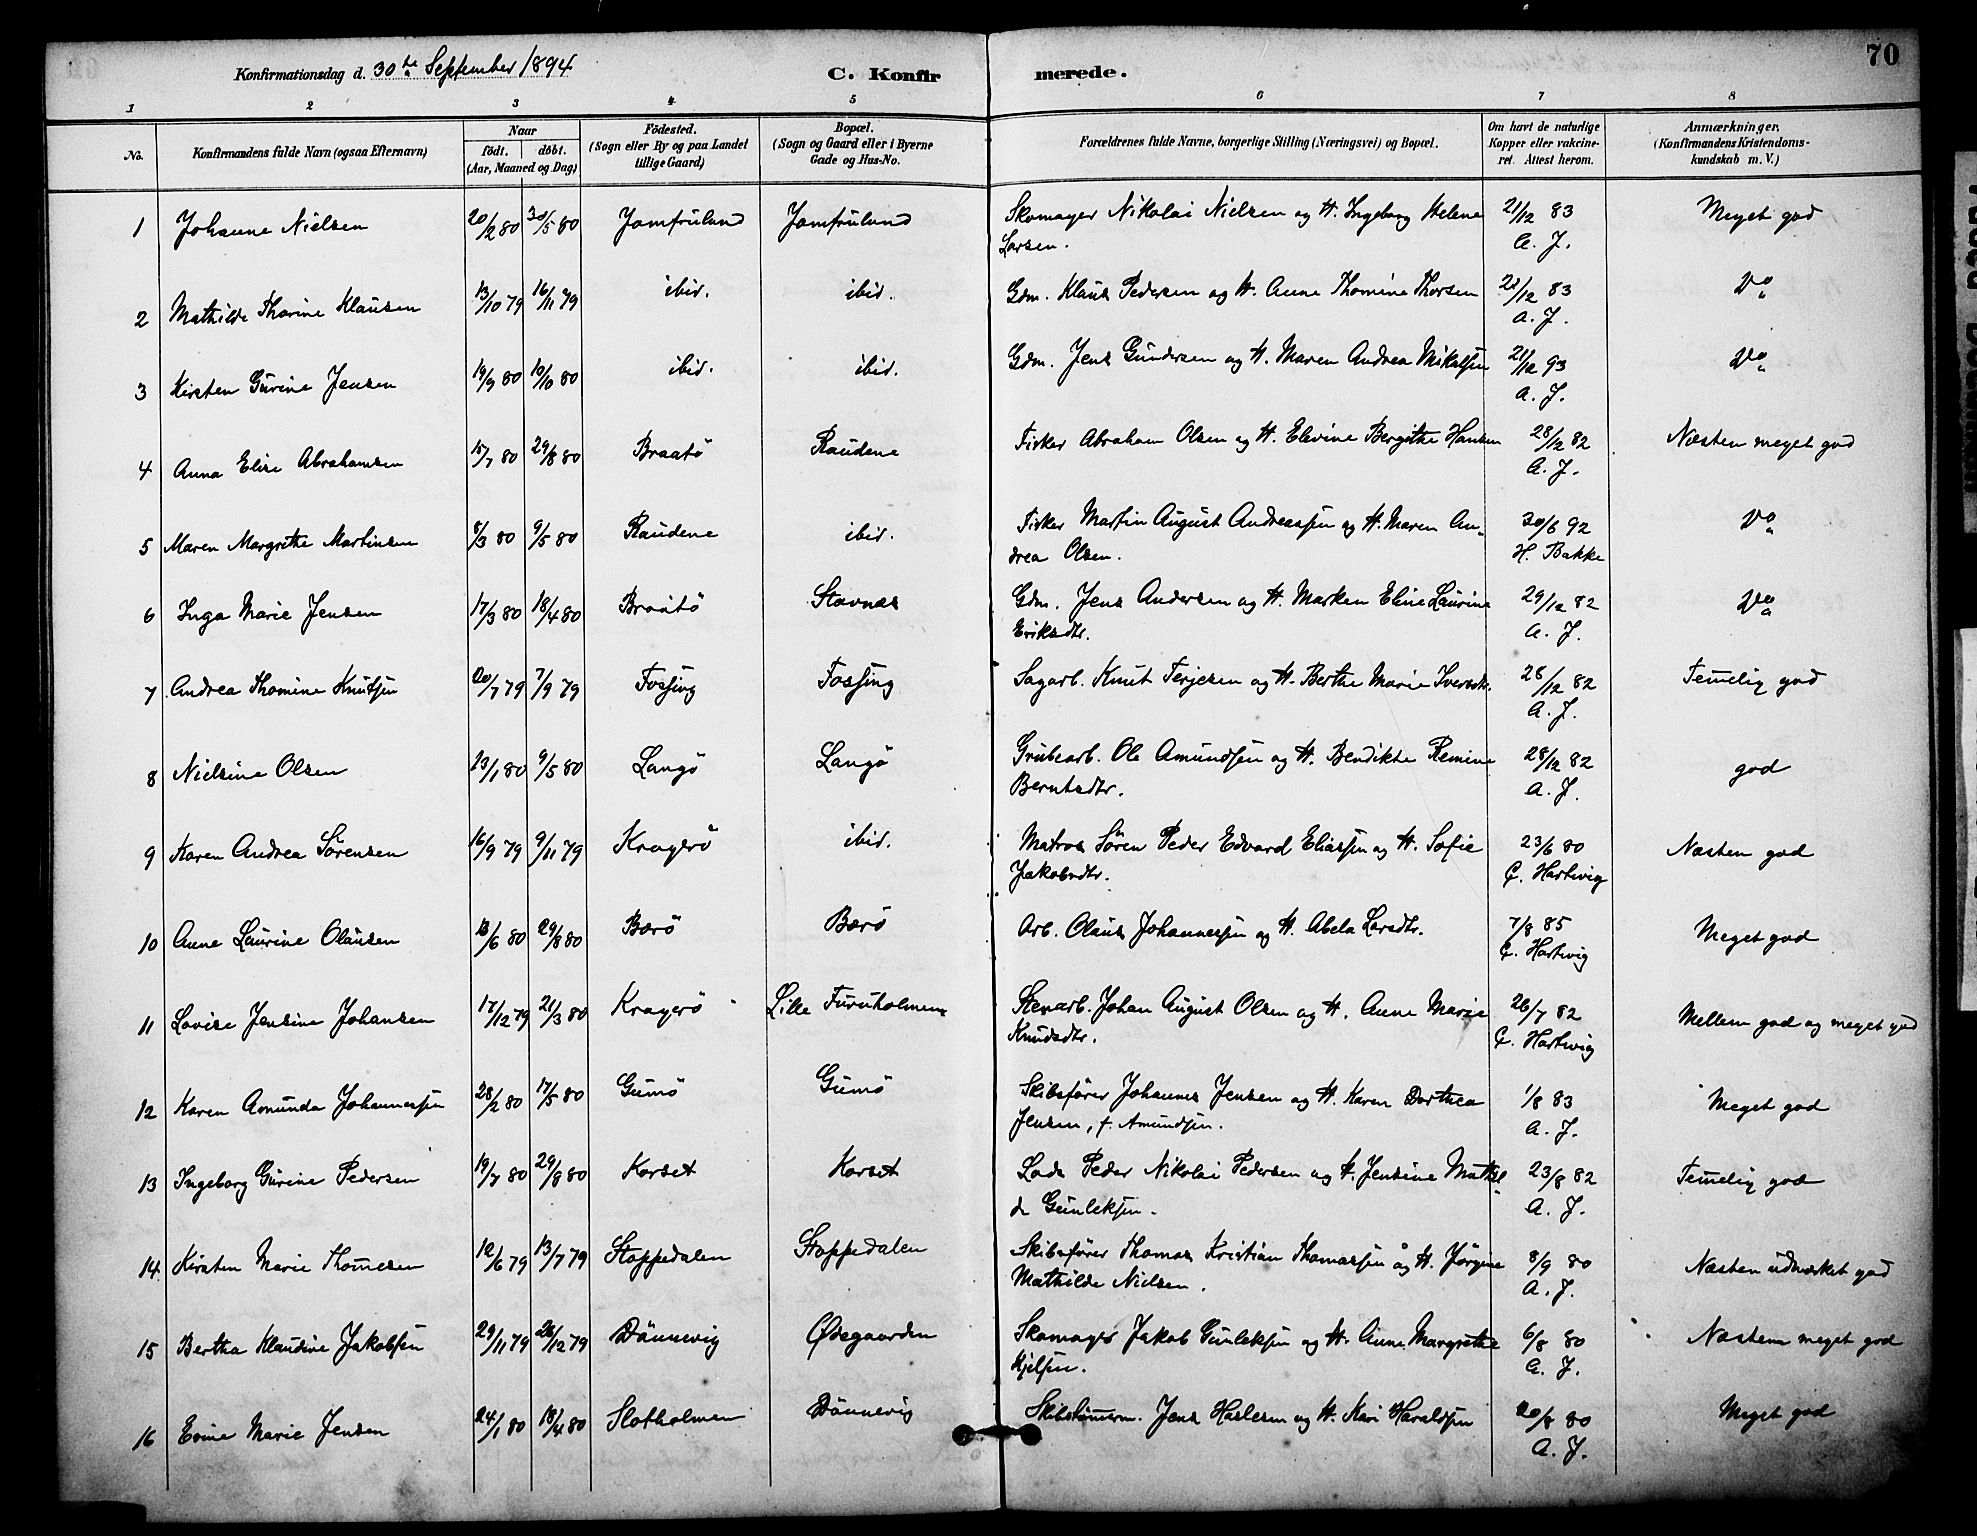 Konfirmationsdag d. 30te September 1894 C. Konfirmerede. 70
1 2 3 4 5 6 7 8
No. Konfirmandens fulde Navn (ogsaa Efternavn) Naar födt. döbt. (Aar, Maaned og Dag) Födested. (Sogn eller By og paa Landet tillige Gaard) Bopæl. (Sogn og Gaard eller i Byerne Gade og Hus-No. Forældrenes fulde Navne, borgerlige Stilling (Næringsvei) og Bopæl. Om havt de naturlige Kopper eller vakcineret. Attest herom. Anmærkninger. (Konfirmandens Kristendomskundskab m. V.)
1 Johanne Nielsen 20/2 80 30/5 80 Jomfruland Jomfruland Skomager Nikolai Nielsen og H. Ingeborg Helene 21/12 83 Meget god
Larsen. A. J.
2 Mathilde Thorine Klausen 13/10 79 16/11 79 ibid. ibid. Gdm. Klaus Pedersen og H. Anne Thomine Thorsen 21/12 83 Do
A. J.
3 Kirsten Gurine Jensen 19/9 80 10/10 80 ibid. ibid. Gdm. Jens Gundersen og H. Maren Andrea Mikalsen 21/12 93 Do
A. J.
4 Anna Elise Abrahamsen 15/7 80 29/8 80 Braatö Raudene Fisker Abraham Olsen og H. Elevine Bergithe Hansen 28/12 82 Næsten meget god
A. J.
5 Maren Margrethe Martinsen 8/3 80 9/5 80 Raudene ibid. Fisker Martin August Andreassen og H. Maren An- 30/6 92 Do
drea Olsen. H. Bakke
6 Inga Marie Jensen 17/3 80 18/4 80 Braatö Stavnæs Gdm. Jens Andersen og H. Marken Eline Laurine 29/12 82 Do
Eriksdtr. A. J.
7 Andrea Thomine Knutsen 20/7 79 7/9 79 Fossing Fossing Sagarb. Knut Terjesen og H. Berthe Marie Iversdtr. 28/12 82 Temelig god
A. J.
8 Nielsine Olsen 13/1 80 9/5 80 Langö Langö Grubearb. Ole Amundsen og H. Bendikte Remine 28/12 82 god
Berntsdtr. A. J.
9 Karen Andrea Sørensen 16/9 79 9/11 79 Kragerö ibid. Matros Sören Peder Edvard Eliassen og H. Sofie 23/6 80 Næsten god
Jakobsdtr. C. Hartwig
10 Anne Laurine Olausen 13/6 80 29/8 80 Barö Barö Arb. Olaus Johannessen og H. Abela Larsdtr. 7/8 85 Meget god
C. Hartwig
11 Lovise Jensine Johansen 17/12 79 21/3 80 Kragerö Lille Furuholmen Stenarb. Johan August Olsen og H. Anne Marie 26/7 82 Mellem god og meget god
Knudsdtr. C. Hartwig
12 Karen Amunda Johannessen 28/2 80 17/5 80 Gumö Gumö Skibsfører Johannes Jensen og H. Karen Dorthea 1/8 83 Meget god
Jensen, f. Amundsen. A. J.
13 Ingeborg Gurine Pedersen 19/7 80 29/8 80 Korset Korset Lods Peder Nikolai Pedersen og H. Jensine Mathil- 23/8 82 Temelig god
de Gunleksen. A. J.
14 Kirsten Marie Thomesen 12/6 79 13/7 79 Stoppedalen Stoppedalen Skibsfører Thomas Kristian Thomassen og H. Jörgine 8/9 80 Næsten udmærket god
Mathilde Nielsen. A. J.
15 Bertha Klaudine Jakobsen 29/11 79 26/12 79 Dönnevig Ødegaarden Skomager Jakob Gunleksen og H. Anne Margrethe 6/8 80 Næsten meget god
Kjelsen. A. J.
16 Evine Marie Jensen 24/1 80 18/4 80 Slotholmen Dönnevig Skibstömerm. Jens Haslesen og H. Kari Haraldsen 20/8 80 Meget god
A. J.